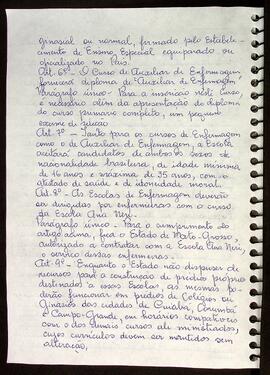 ginasial ou normal, firmado pelo Estabele-
cimento de Ensino, Especial, equiparado ou
oficializado no País.
Art. 6º - O Curso de Auxiliar de Enfermagem,
fornecerá diploma de Auxiliar de Enfermagem.
Parágrafo único - Para a inscrição neste Curso,
é necessário além da apresentação do diploma
do curso primário completo, um pequeno
exame de seleção.
Art. 7º - Tanto para os cursos de Enfermagem
como o de Auxiliar de Enfermagem, a Escola
aceitará candidatos de ambos os sexos de
nacionalidade brasileira, de idade mínima
de 16 anos e máxima de 35 anos, com o
atestado de saúde e de idoneidade moral.
Art. 8º - As Escolas de Enfermagem deverão
ser dirigidas por enfermeiros com o curso
da Escola Ana Neri.
Parágrafo único - Para o cumprimento do
artigo acima, fica o Estado de Mato-Grosso,
autorizado a contratar com a Escola Ana Neri,
o serviço dessas enfermeiras.
Art. 9º - Enquanto o Estado não dispuser de
recursos para a construção de prédios próprios
destinados a essas Escolas, as mesmas po-
derão funcionar em prédios de Colégios ou
Ginásios das cidades de Cuiabá, Corumbá
e Campo-Grande, em horários compatíveis
com o dos demais cursos ali ministrados,
cujos currículos devem ser mantidos sem
alteração.